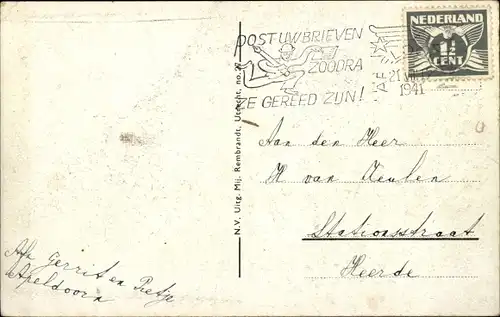 POST UW BRIEVEN
ZOODRA
ZE GEREED ZIJN!
NEDERLAND
1½
CENT
1941
N.V. Uitg. Mij. Rembrandt, Utrecht, no.
Aan den Heer
H van Keulen
Stationsstraat
Heerde
Afz Gerrit en Pietje
Apeldoorn